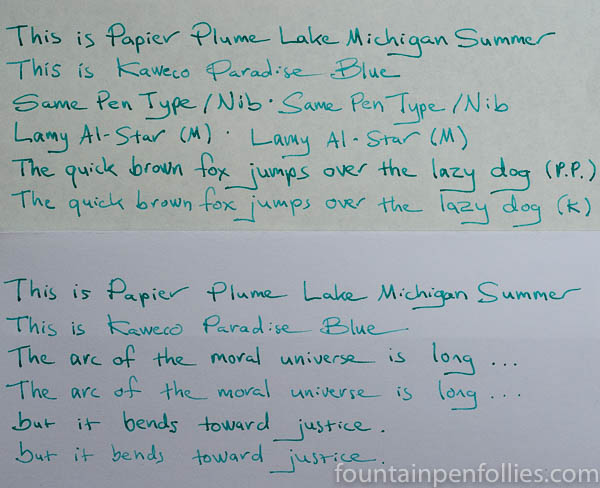 This is Papier Plume Lake Michigan Summer
This is Kaweco Paradise Blue
Same Pen Type/Nib · Same Pen Type/Nib
Lamy Al-Star (M) · Lamy Al-Star (M)
The quick brown fox jumps over the lazy dog (P.P.)
The quick brown fox jumps over the lazy dog (K)
This is Papier Plume Lake Michigan Summer
This is Kaweco Paradise Blue
The arc of the moral universe is long ...
The arc of the moral universe is long ...
but it bends toward justice.
but it bends toward justice.
fountainpenfollies.com